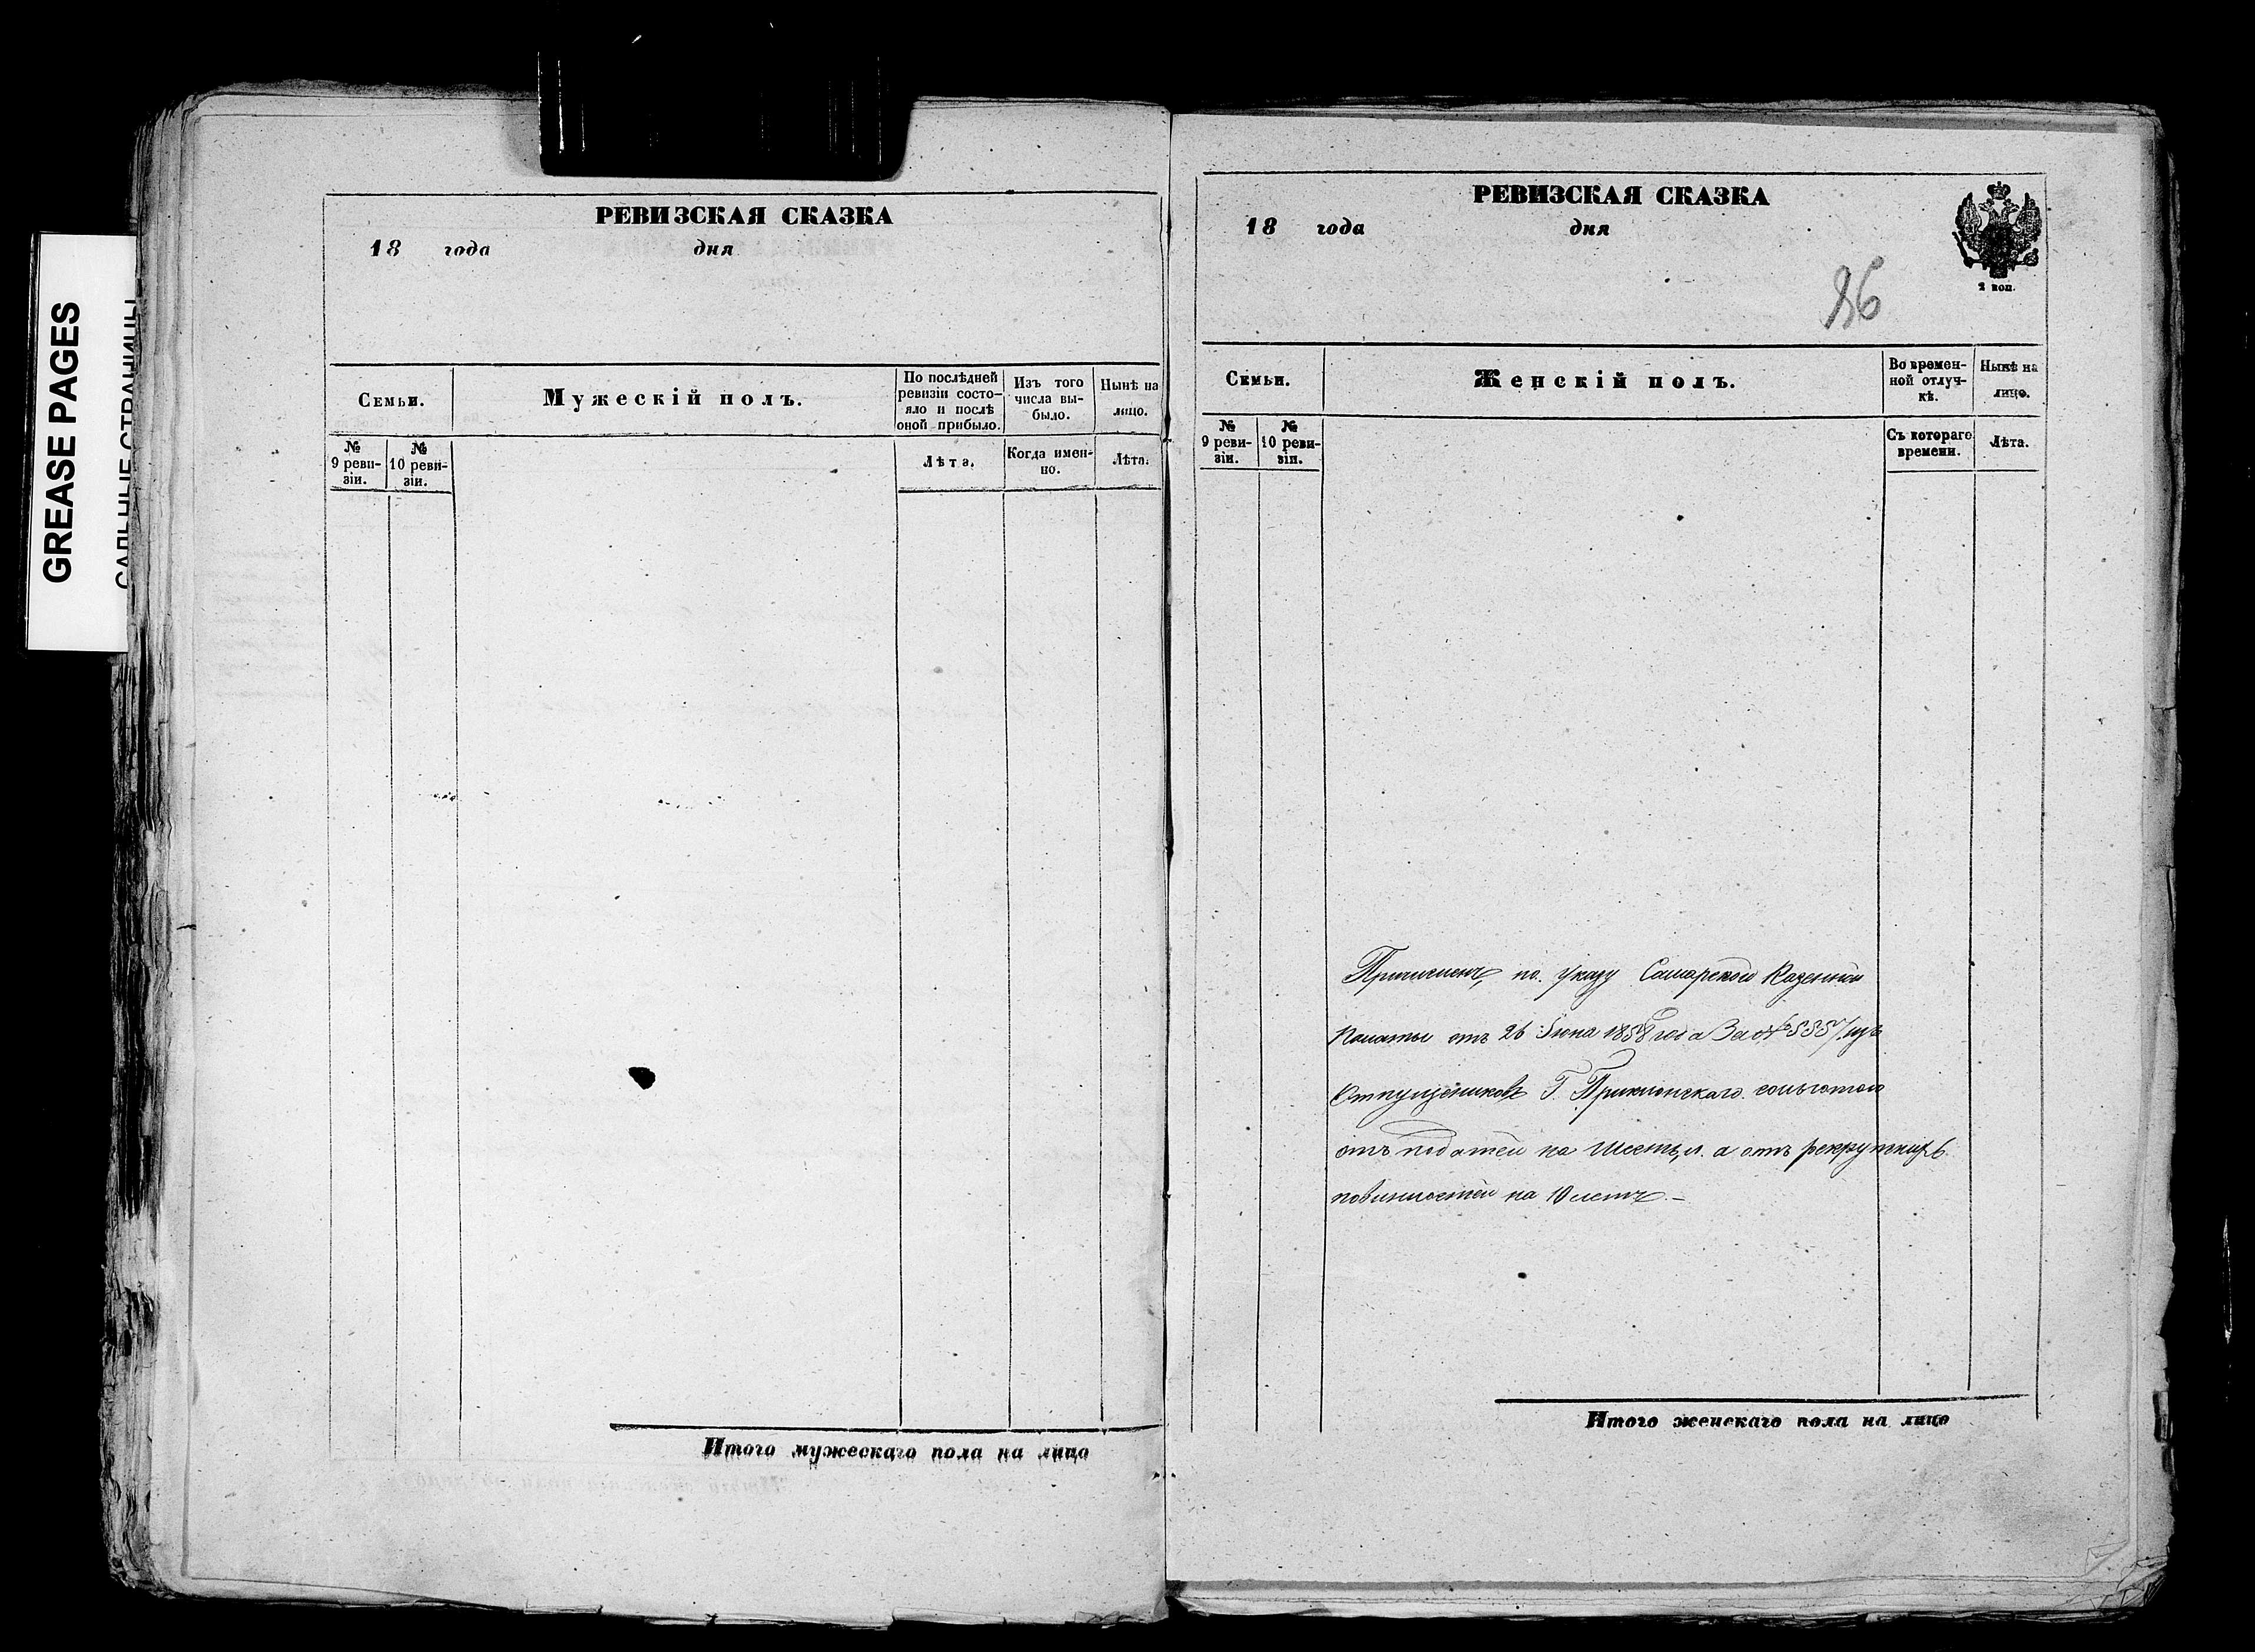 GREASE PAGES
САЛЬНЫЕ СТРАНИЦЫ
РЕВИЗСКАЯ СКАЗКА
18 года дня
Семьи.
Мужескій полъ.
По послѣдней ревизіи состояло и послѣ оной прибыло.
Изъ того числа выбыло.
Нынѣ на лицо.
№ 9 ревизіи.
№ 10 ревизіи.
Лѣта.
Когда именно.
Лѣта.
Итого мужескаго пола на лицо
РЕВИЗСКАЯ СКАЗКА
18 года дня
2 коп.
Семьи.
Женскій полъ.
Во временной отлучкѣ.
Нынѣ на лицо.
№ 9 ревизіи.
№ 10 ревизіи.
Съ котораго времени.
Лѣта.
Причисленъ по Указу Самарской Казенной
Палаты отъ 26 Іюна 1858 года За № 5357 изъ
Отпущениковъ Г. Приклонскаго сольготою
отъ податей на Шесть л. а отъ рекрутскихъ
повинностей на 10 летъ.-
Итого женскаго пола на лицо